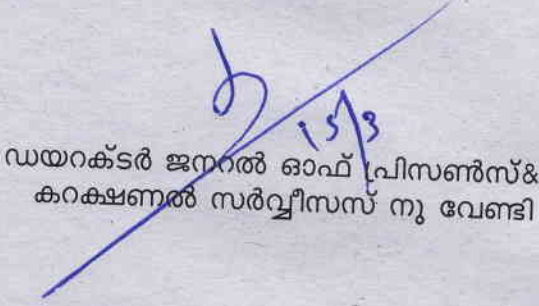 15/3
ഡയറക്ടർ ജനറൽ ഓഫ് പ്രിസൺസ്&
കറക്ഷണൽ സർവ്വീസസ് നു വേണ്ടി